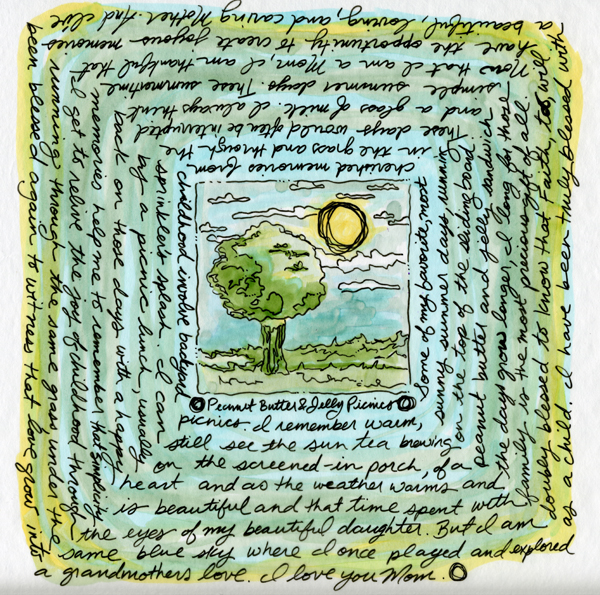 Peanut Butter & Jelly Picnics
Some of my favorite, most
cherished memories from
childhood involve backyard
picnics. I remember warm,
sunny summer days, running
in the grass and through the
sprinkler's splash. I can
still see the sun tea brewing
on the top of the sliding board.
These days would often be interrupted
by a picnic lunch, usually
on the screened-in porch, of a
peanut butter and jelly sandwich
and a glass of milk. I always think
back on those days with a happy
heart and as the weather warms and
the days grow longer, I long for those
simple summer days. These summertime
memories help me to remember that simplicity
is beautiful and that time spent with
family is the most precious gift of all.
Now that I am a Mom, I am thankful that
I get to relive the joy of childhood through
the eyes of my beautiful daughter. But I am
doubly blessed to know that Faith, too, will
have the opportunity to create joyous memories
running through the same grass under the
same blue sky where I once played and explored
as a child. I have been truly blessed with
a beautiful, loving, and caring Mother. And I've
been blessed again to witness that love grow into
a grandmothers love. I love you Mom.